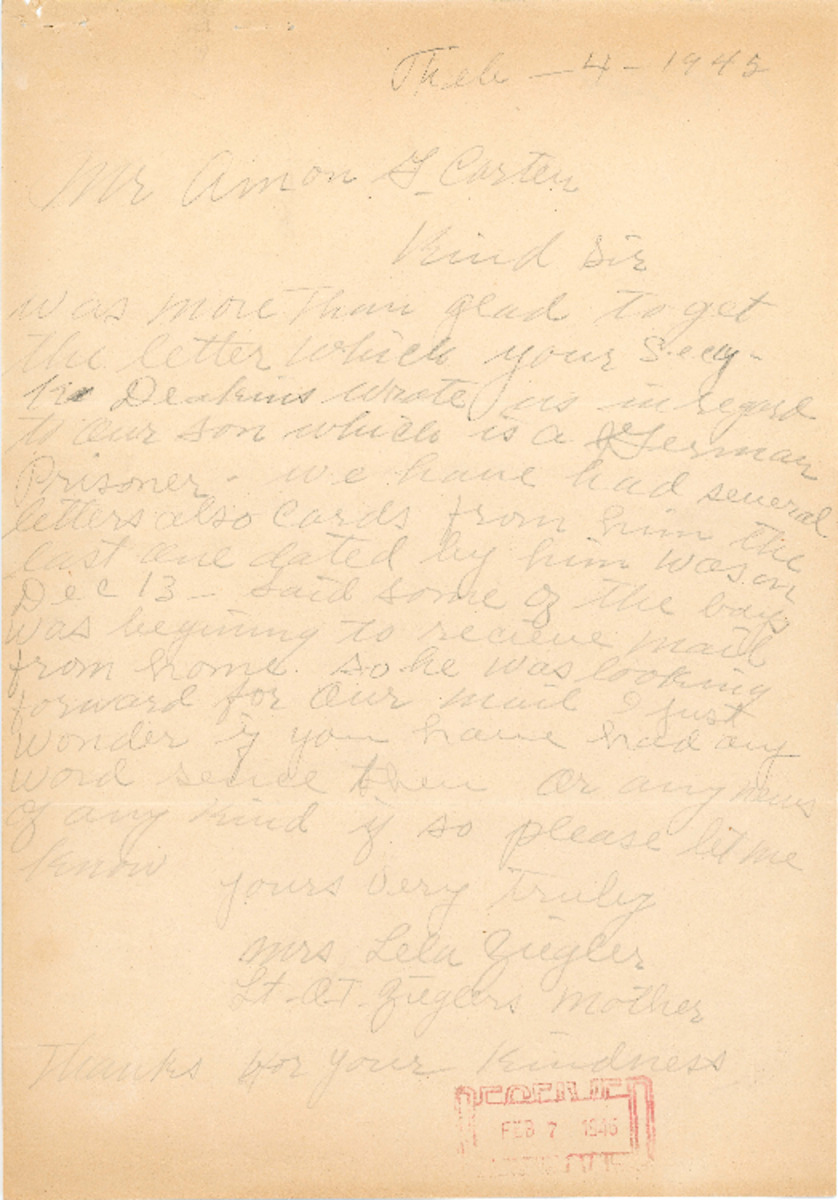 Feb - 4 - 1945
Mr Amon G Carter
Kind Sir
was more than glad to get
the letter which your Secy-
Deakins wrote us in regard
to our son which is a German
Prisoner - we have had several
letters also Cards from him the
last one dated by him was on
Dec 13 - said some of the boys
was begining to recieve mail
from home. So he was looking
forward for our mail I just
wonder if you have had any
word sence then or any news
of any kind if so please let me
know
yours very truly
Mrs Lela Ziegler
Lt. O.T. Zieglers Mother
Thanks for your kindness
RECEIVED
FEB 7 1945